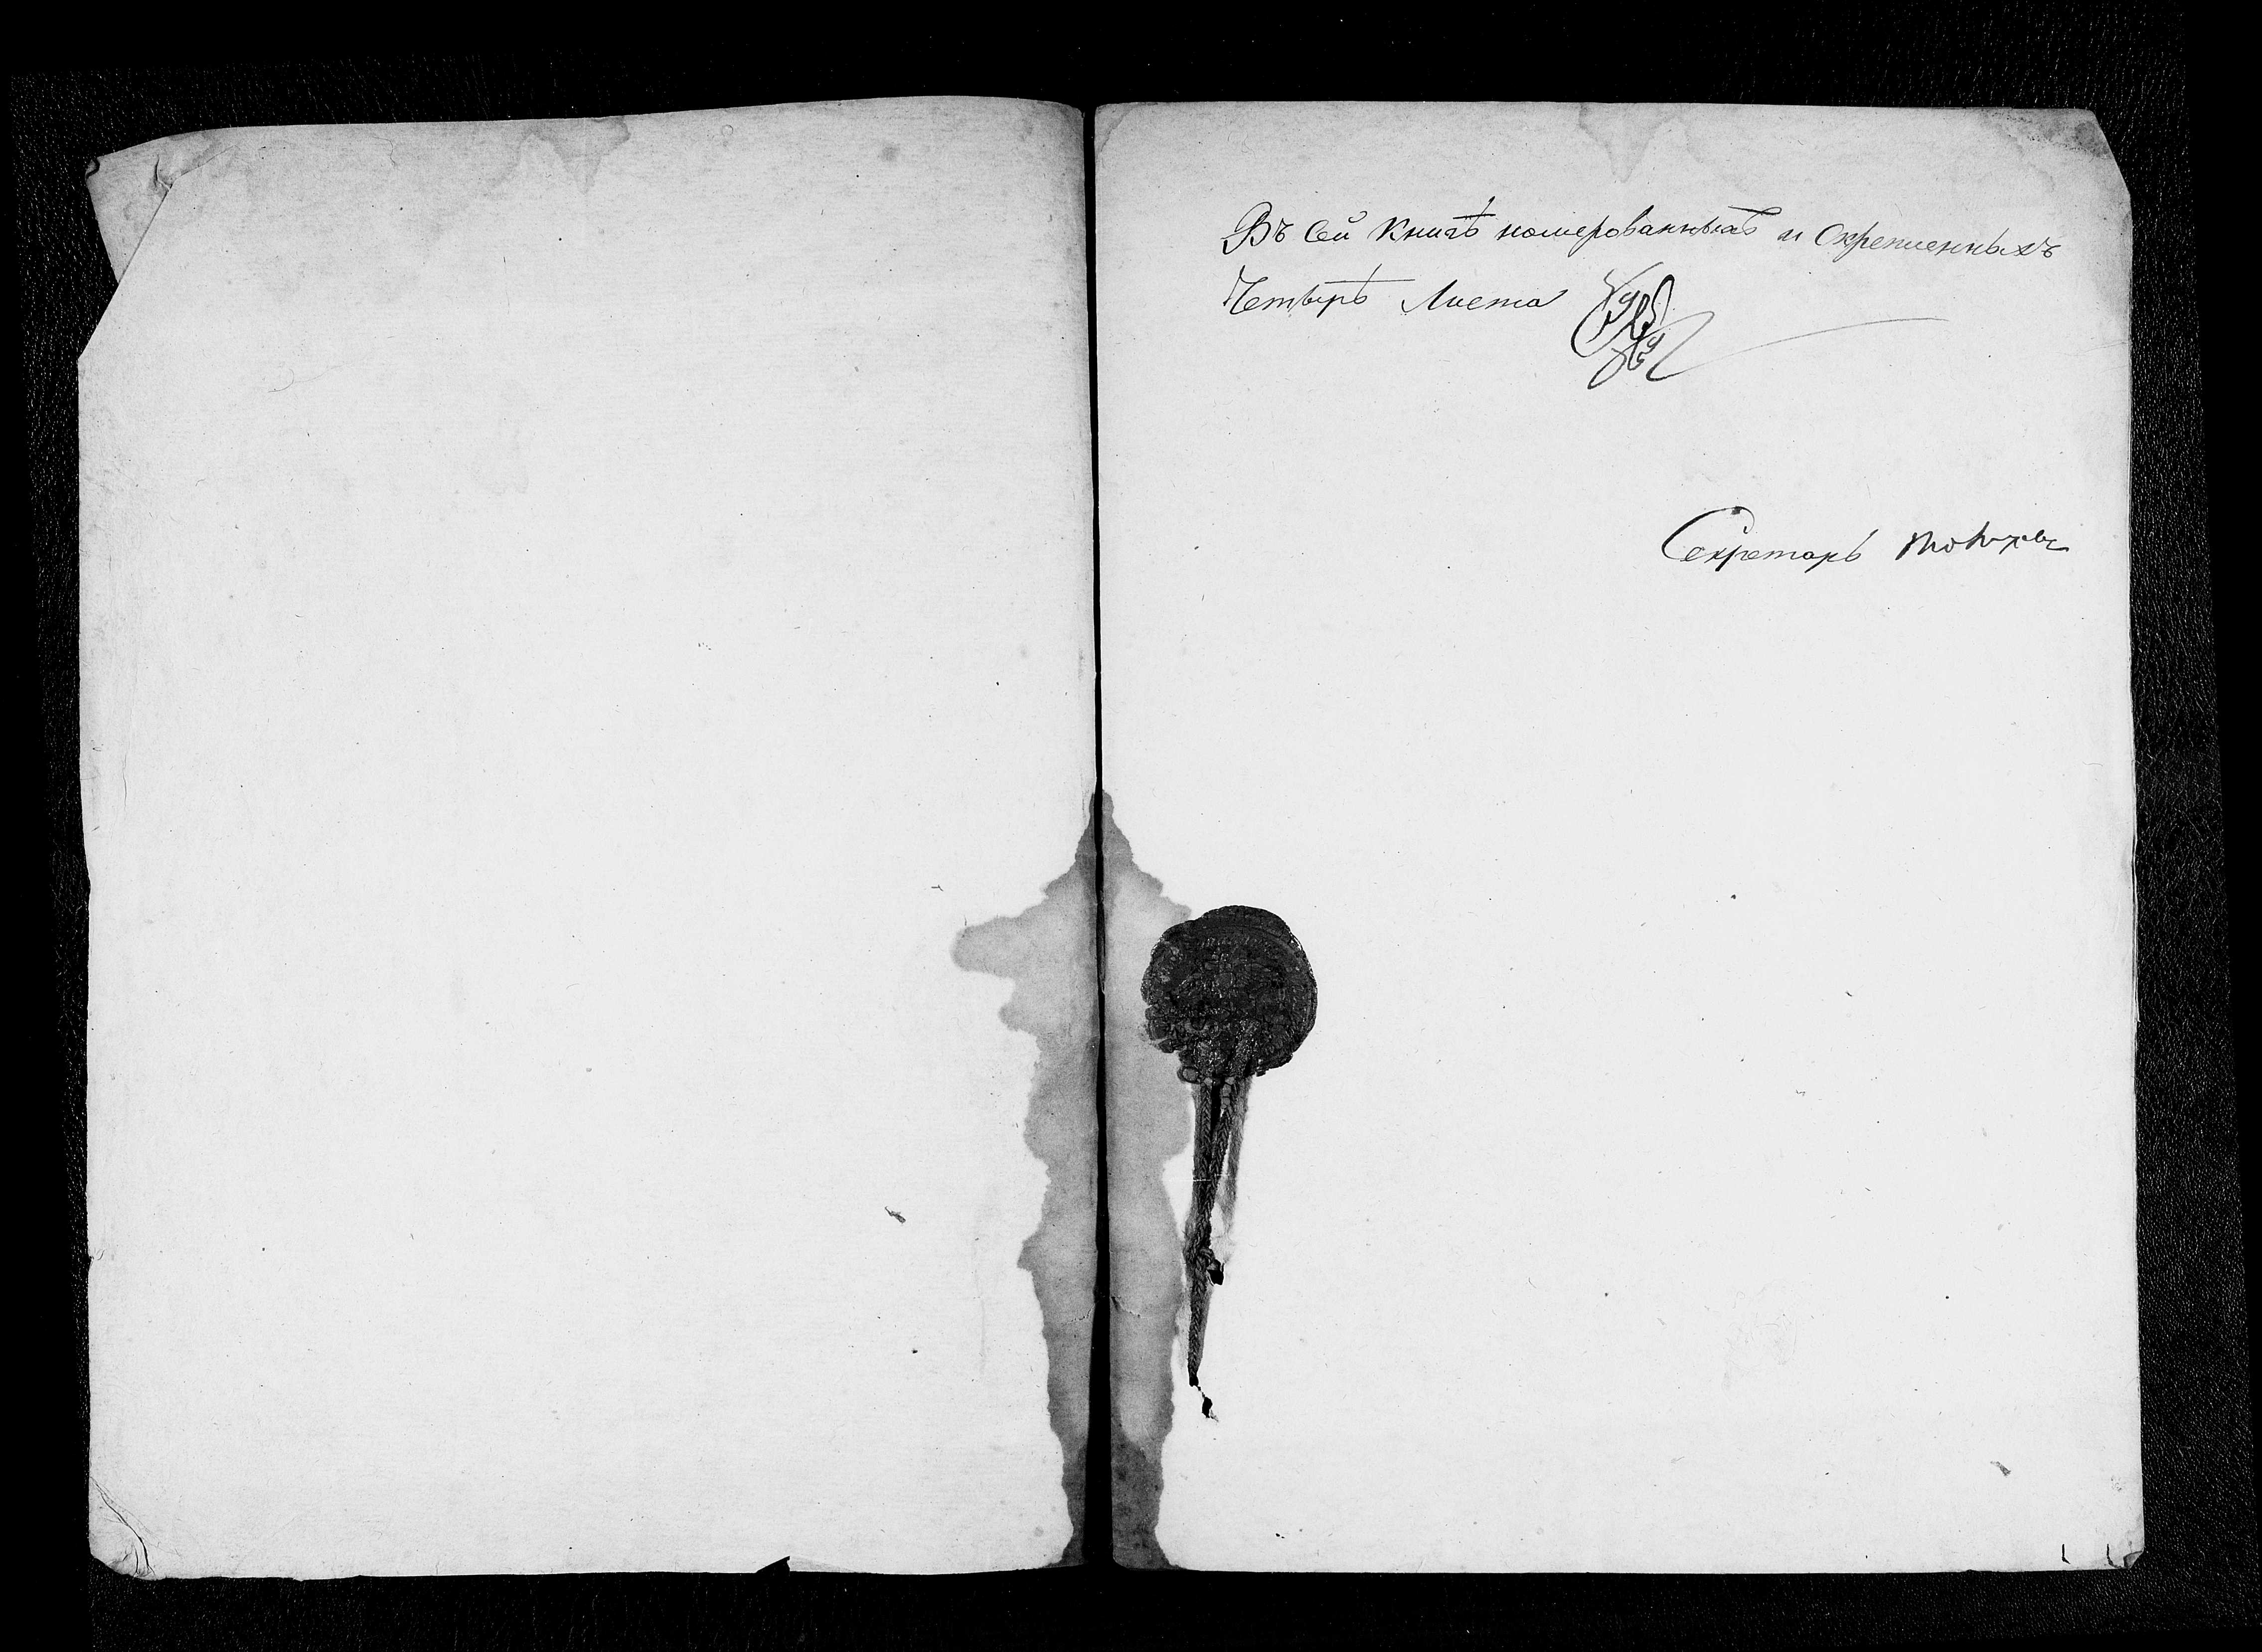 Въ сей Книгѣ номерованныхъ и Скрепленныхъ
Четырѣ Листа
Секретарь